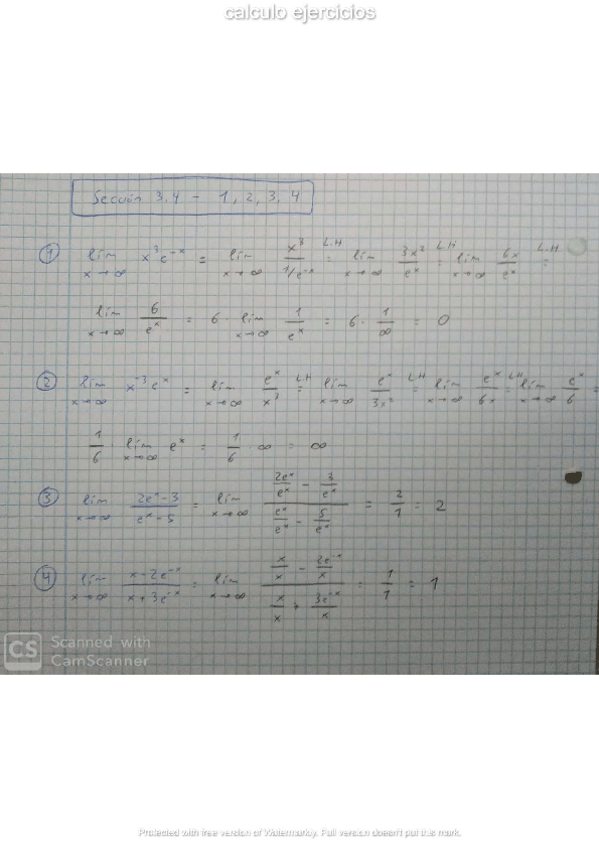 calculo ejercicios
Sección 3.4 - 1, 2, 3, 4
① lim x→∞ x³e⁻ˣ = lim x→∞ x³/(1/e⁻ˣ) L.H = lim x→∞ 3x²/eˣ L.H = lim x→∞ 6x/eˣ L.H =
lim x→∞ 6/eˣ = 6 · lim x→∞ 1/eˣ = 6 · 1/∞ = 0
② lim x→∞ x⁻³eˣ = lim x→∞ eˣ/x³ L.H = lim x→∞ eˣ/3x² L.H = lim x→∞ eˣ/6x L.H = lim x→∞ eˣ/6 =
1/6 · lim x→∞ eˣ = 1/6 · ∞ = ∞
③ lim x→∞ (2eˣ-3)/(eˣ-5) = lim x→∞ (2eˣ/eˣ - 3/eˣ)/(eˣ/eˣ - 5/eˣ) = 2/1 = 2
④ lim x→∞ (x-2e⁻ˣ)/(x+3e⁻ˣ) = lim x→∞ (x/x - 2e⁻ˣ/x)/(x/x + 3e⁻ˣ/x) = 1/1 = 1
CS Scanned with
CamScanner
Protected with free version of Watermarkly. Full version doesn't put this mark.